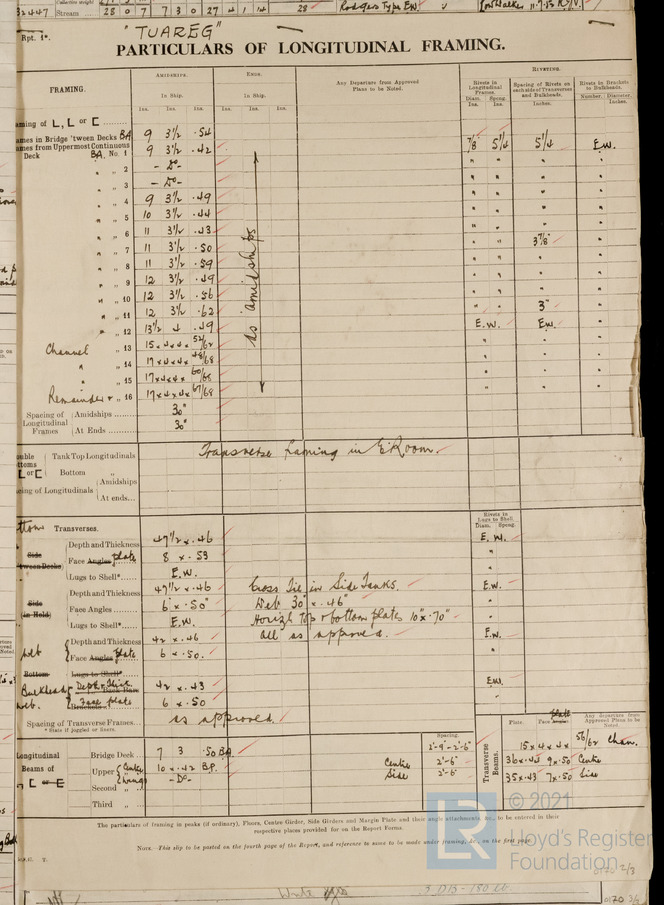 Stream 28 0 7 7 3 0 27 4 1 14 28 Rodgers Type E.W. v
Rpt. 1*. "TUAREG"
PARTICULARS OF LONGITUDINAL FRAMING.
FRAMING. AMIDSHIPS. ENDS. Any Departure from Approved Plans to be Noted. RIVETING.
In Ship. In Ship. Rivets in Longitudinal Frames. Spacing of Rivets on each side of Transverses and Bulkheads. Rivets in Brackets to Bulkheads.
Ins. Ins. Ins. Ins. Ins. Ins. Diam. Ins. Speng. Ins. Inches. Number. Diameter. Inches.
aming of L, L or C
ames in Bridge 'tween Decks BA 9 3½ .54
ames from Uppermost Continuous Deck BA. No. 1 9 3½ .42 7/8 5¼ 5¼ E.W.
" " 2 - Do - " " " "
" " 3 - Do - " " " "
" " 4 9 3½ .49 " " " "
" " 5 10 3½ .44 " " " "
" " 6 11 3½ .43 " " " "
" " 7 11 3½ .50 " " 3⅞" "
" " 8 11 3½ .59 " " " "
" " 9 12 3½ .49 " " " "
" " 10 12 3½ .56 " " " "
" " 11 12 3½ .62 " " 3" "
" " 12 13½ 4 .49 E.W. E.W. "
as amidships
Channel " 13 15 x 4 x 4 x 52/62 " " "
" " 14 17 x 4 x 4 x 48/68 " " "
" " 15 17 x 4 x 4 x 60/68 " " "
Remainder " " 16 17 x 4 x 4 x 67/68 " " "
Spacing of Longitudinal Frames Amidships 30"
At Ends 30"
ouble ottoms L or C Tank Top Longitudinals Transverse framing in E.Room.
Bottom "
cing of Longitudinals Amidships
At ends...
Rivets in Lugs to Shell. Diam. Speng.
ottom Transverses.
Depth and Thickness 47½ x .46 E.W.
Side 'tween Decks Face Angles plate 8 x .53 "
Lugs to Shell* E.W. "
Depth and Thickness 47½ x .46 Cross Tie in Side Tanks. E.W.
Side (in Hold) Face Angles 6 x .50" Web 30" x .46" "
Lugs to Shell* E.W. Horizl top & bottom plates 10" x .70" "
Depth and Thickness 42 x .46 all as approved. E.W.
Web Face Angles plate 6 x .50. "
Bottom Lugs to Shell*
Buckhead Web. Depth & Thick. Back Bars 42 x .43 E.W.
Brackets Face plate 6 x .50 "
Spacing of Transverse Frames as approved.
* State if joggled or liners.
Plate. Face Angles plate Any departure from Approved Plans to be Noted
Longitudinal Beams of L or C Spacing. Transverse Beams.
Bridge Deck 7 3 .50 B.A. 2'-9"-2'-6" 15 x 4 x 4 x 56/62 Chan.
Upper Centre 10 x .42 B.P. Centre 2'-6" 36 x .44 9 x .50 Centre
Second " Wings - Do - Side 2'-6" 35 x .43 7 x .50 Side
Third "
The particulars of framing in peaks (if ordinary), Floors, Centre Girder, Side Girders and Margin Plate and their angle attachments, &c., to be entered in their
respective places provided for on the Report Forms.
NOTE.—This slip to be pasted on the fourth page of the Report, and reference to same to be made under framing, &c., on the first page.
LR © 2021
Lloyd's Register
Foundation
0170 2/3
0170 3/3